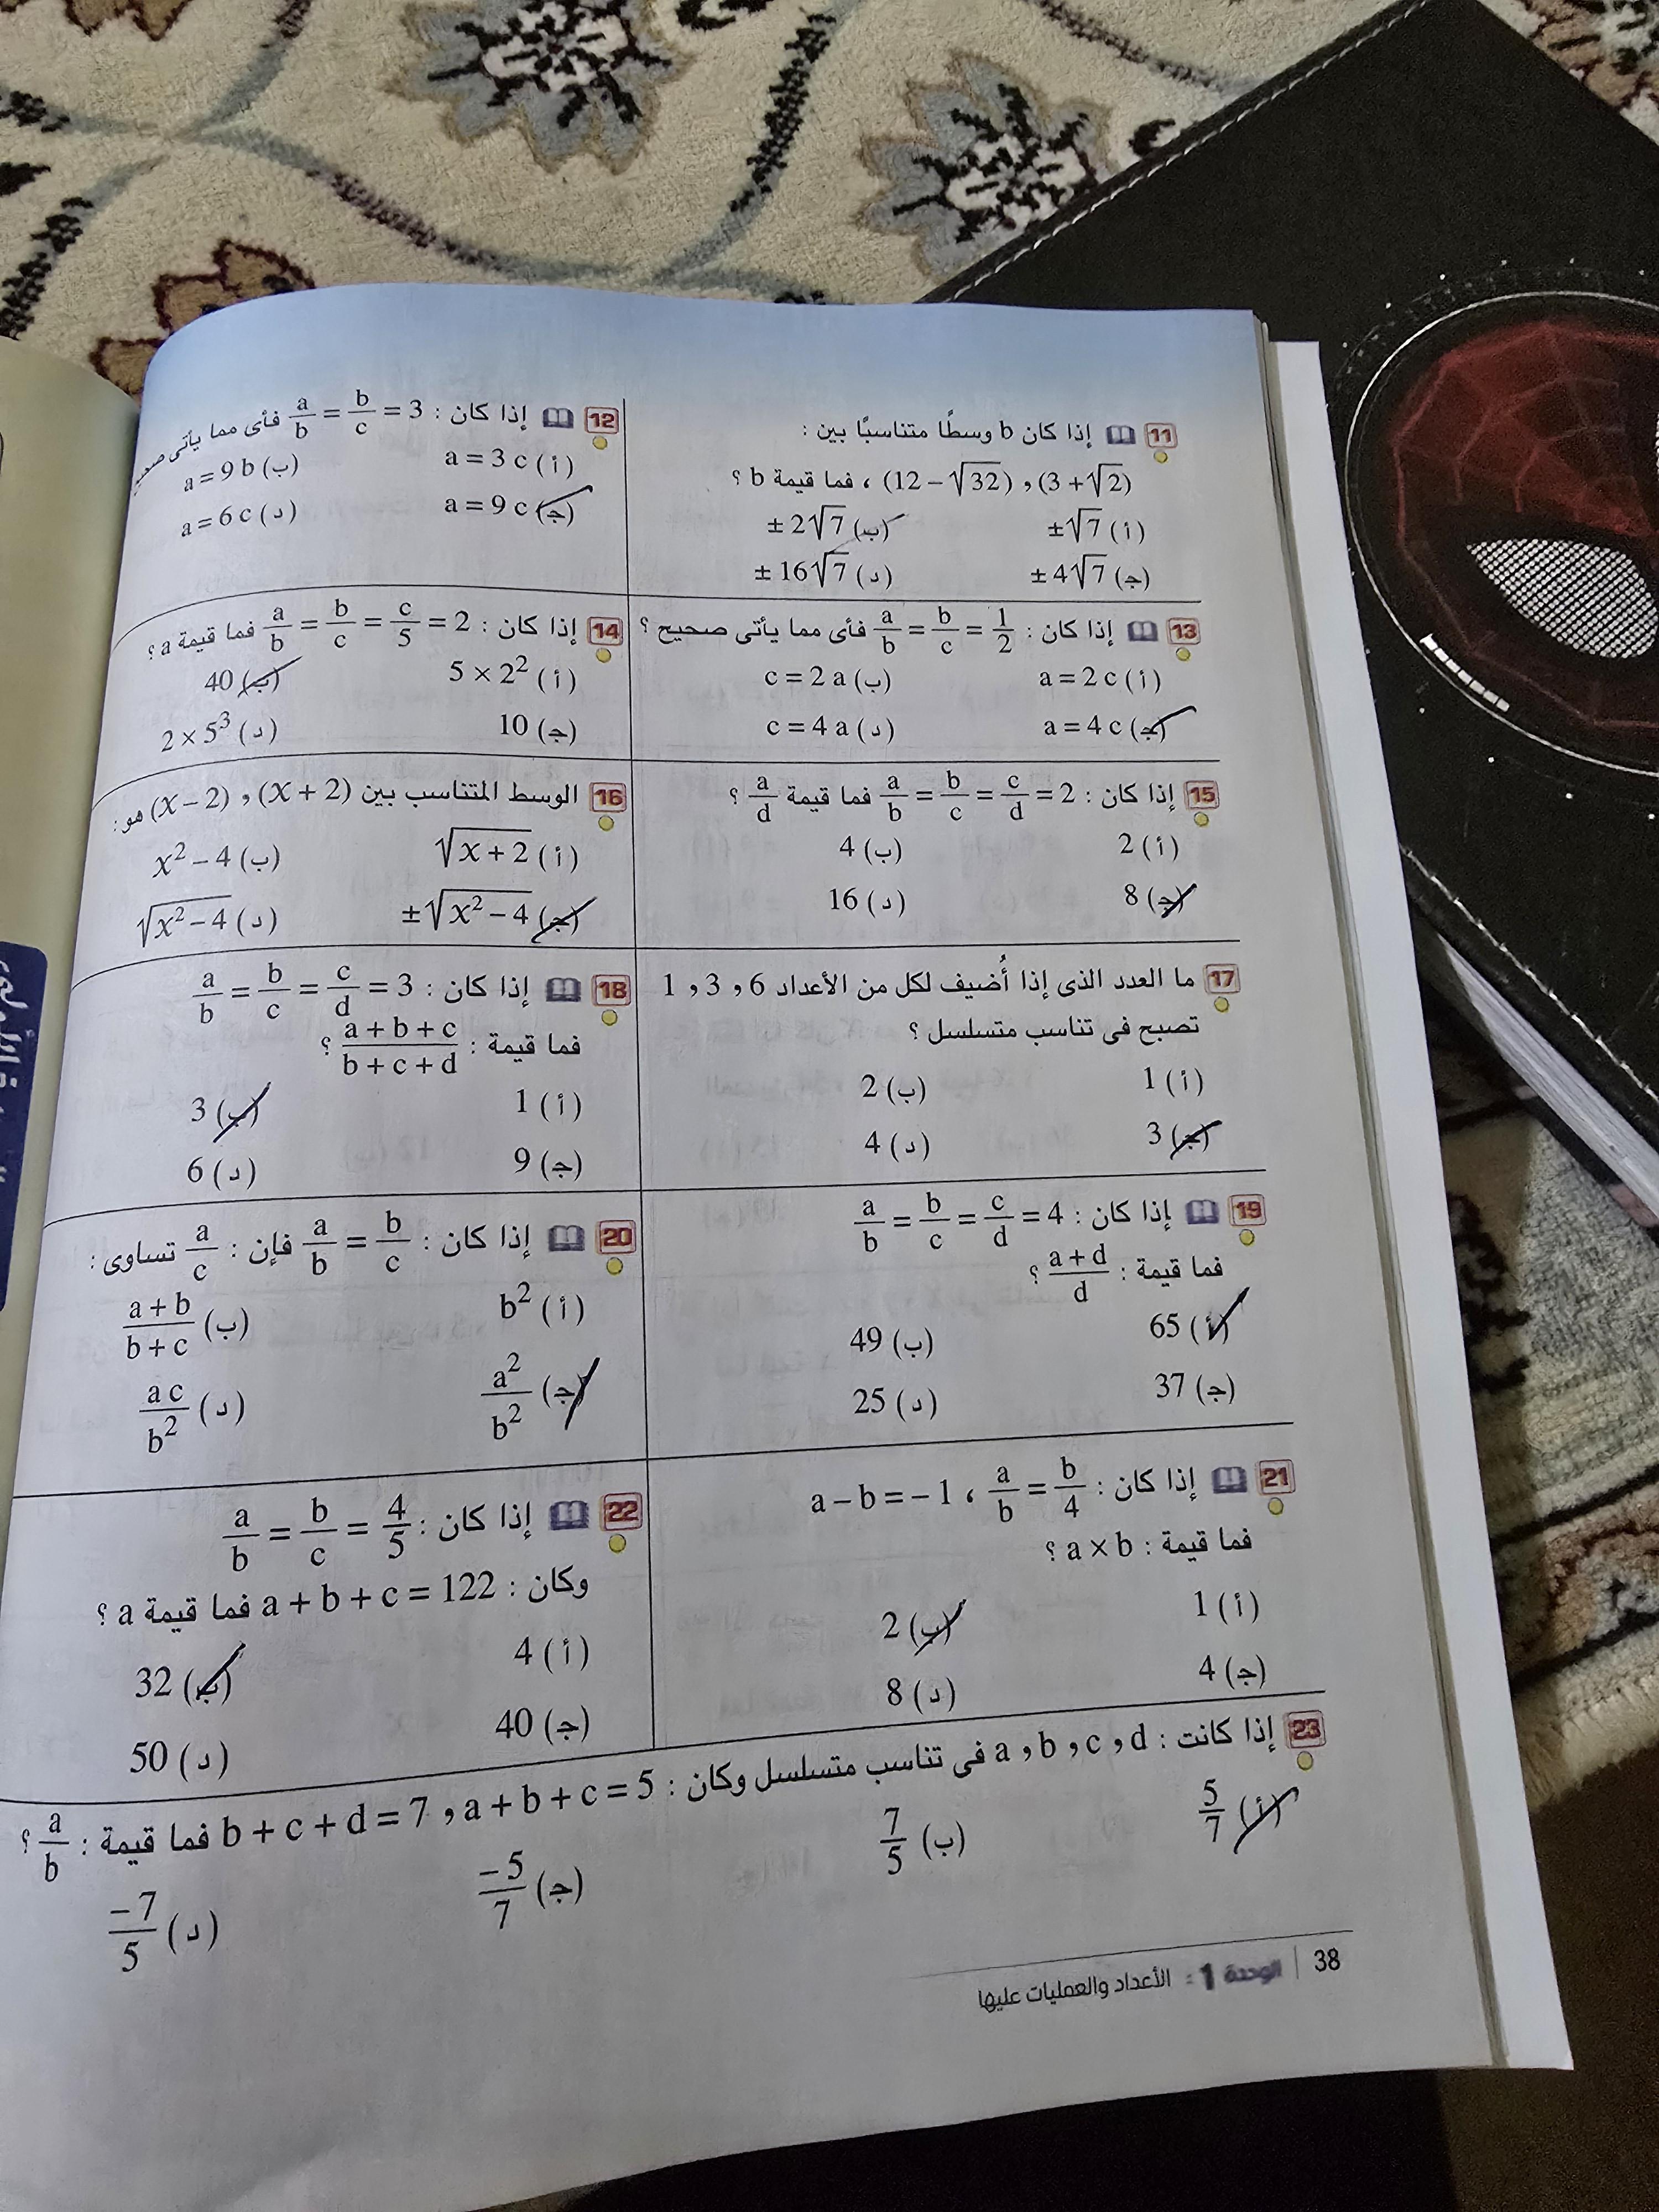 11 إذا كان b وسطًا متناسبًا بين :
(3 + √2) ، (12 – √32) ، فما قيمة b ؟
(أ) ± √7
(ب) ± 2√7
(ج) ± 4√7
(د) ± 16√7
12 إذا كان : a/b = b/c = 3 فأى مما يأتى
(أ) a = 3 c
(ب) a = 9 b
(ج) a = 9 c
(د) a = 6 c
13 إذا كان : a/b = b/c = 1/2 فأى مما يأتى صحيح ؟
(أ) a = 2 c
(ب) c = 2 a
(ج) a = 4 c
(د) c = 4 a
14 إذا كان : a/b = b/c = c/5 = 2 فما قيمة a ؟
(أ) 5 × 2²
(ب) 40
(ج) 10
(د) 2 × 5³
15 إذا كان : a/b = b/c = c/d = 2 فما قيمة a/d ؟
(أ) 2
(ب) 4
(ج) 8
(د) 16
16 الوسط المتناسب بين (x + 2) ، (x – 2) هو :
(أ) √(x + 2)
(ب) x² – 4
(ج) ± √(x² – 4)
(د) √(x² – 4)
17 ما العدد الذى إذا أُضيف لكل من الأعداد 1 ، 3 ، 6
تصبح فى تناسب متسلسل ؟
(أ) 1
(ب) 2
(ج) 3
(د) 4
18 إذا كان : a/b = b/c = c/d = 3
فما قيمة : (a + b + c)/(b + c + d) ؟
(أ) 1
(ب) 3
(ج) 9
(د) 6
19 إذا كان : a/b = b/c = c/d = 4
فما قيمة : (a + d)/d ؟
(أ) 65
(ب) 49
(ج) 37
(د) 25
20 إذا كان : a/b = b/c فإن : a/c تساوى :
(أ) b²
(ب) (a + b)/(b + c)
(ج) a²/b²
(د) a c/b²
21 إذا كان : a/b = b/4 ، a – b = – 1
فما قيمة : a × b ؟
(أ) 1
(ب) 2
(ج) 4
(د) 8
22 إذا كان : a/b = b/c = 4/5
وكان : a + b + c = 122 فما قيمة a ؟
(أ) 4
(ب) 32
(ج) 40
(د) 50
23 إذا كانت : a ، b ، c ، d فى تناسب متسلسل وكان : a + b + c = 5 ، b + c + d = 7 فما قيمة : a/b ؟
(أ) 5/7
(ب) 7/5
(ج) –5/7
(د) –7/5
38 | الوحدة 1 : الأعداد والعمليات عليها